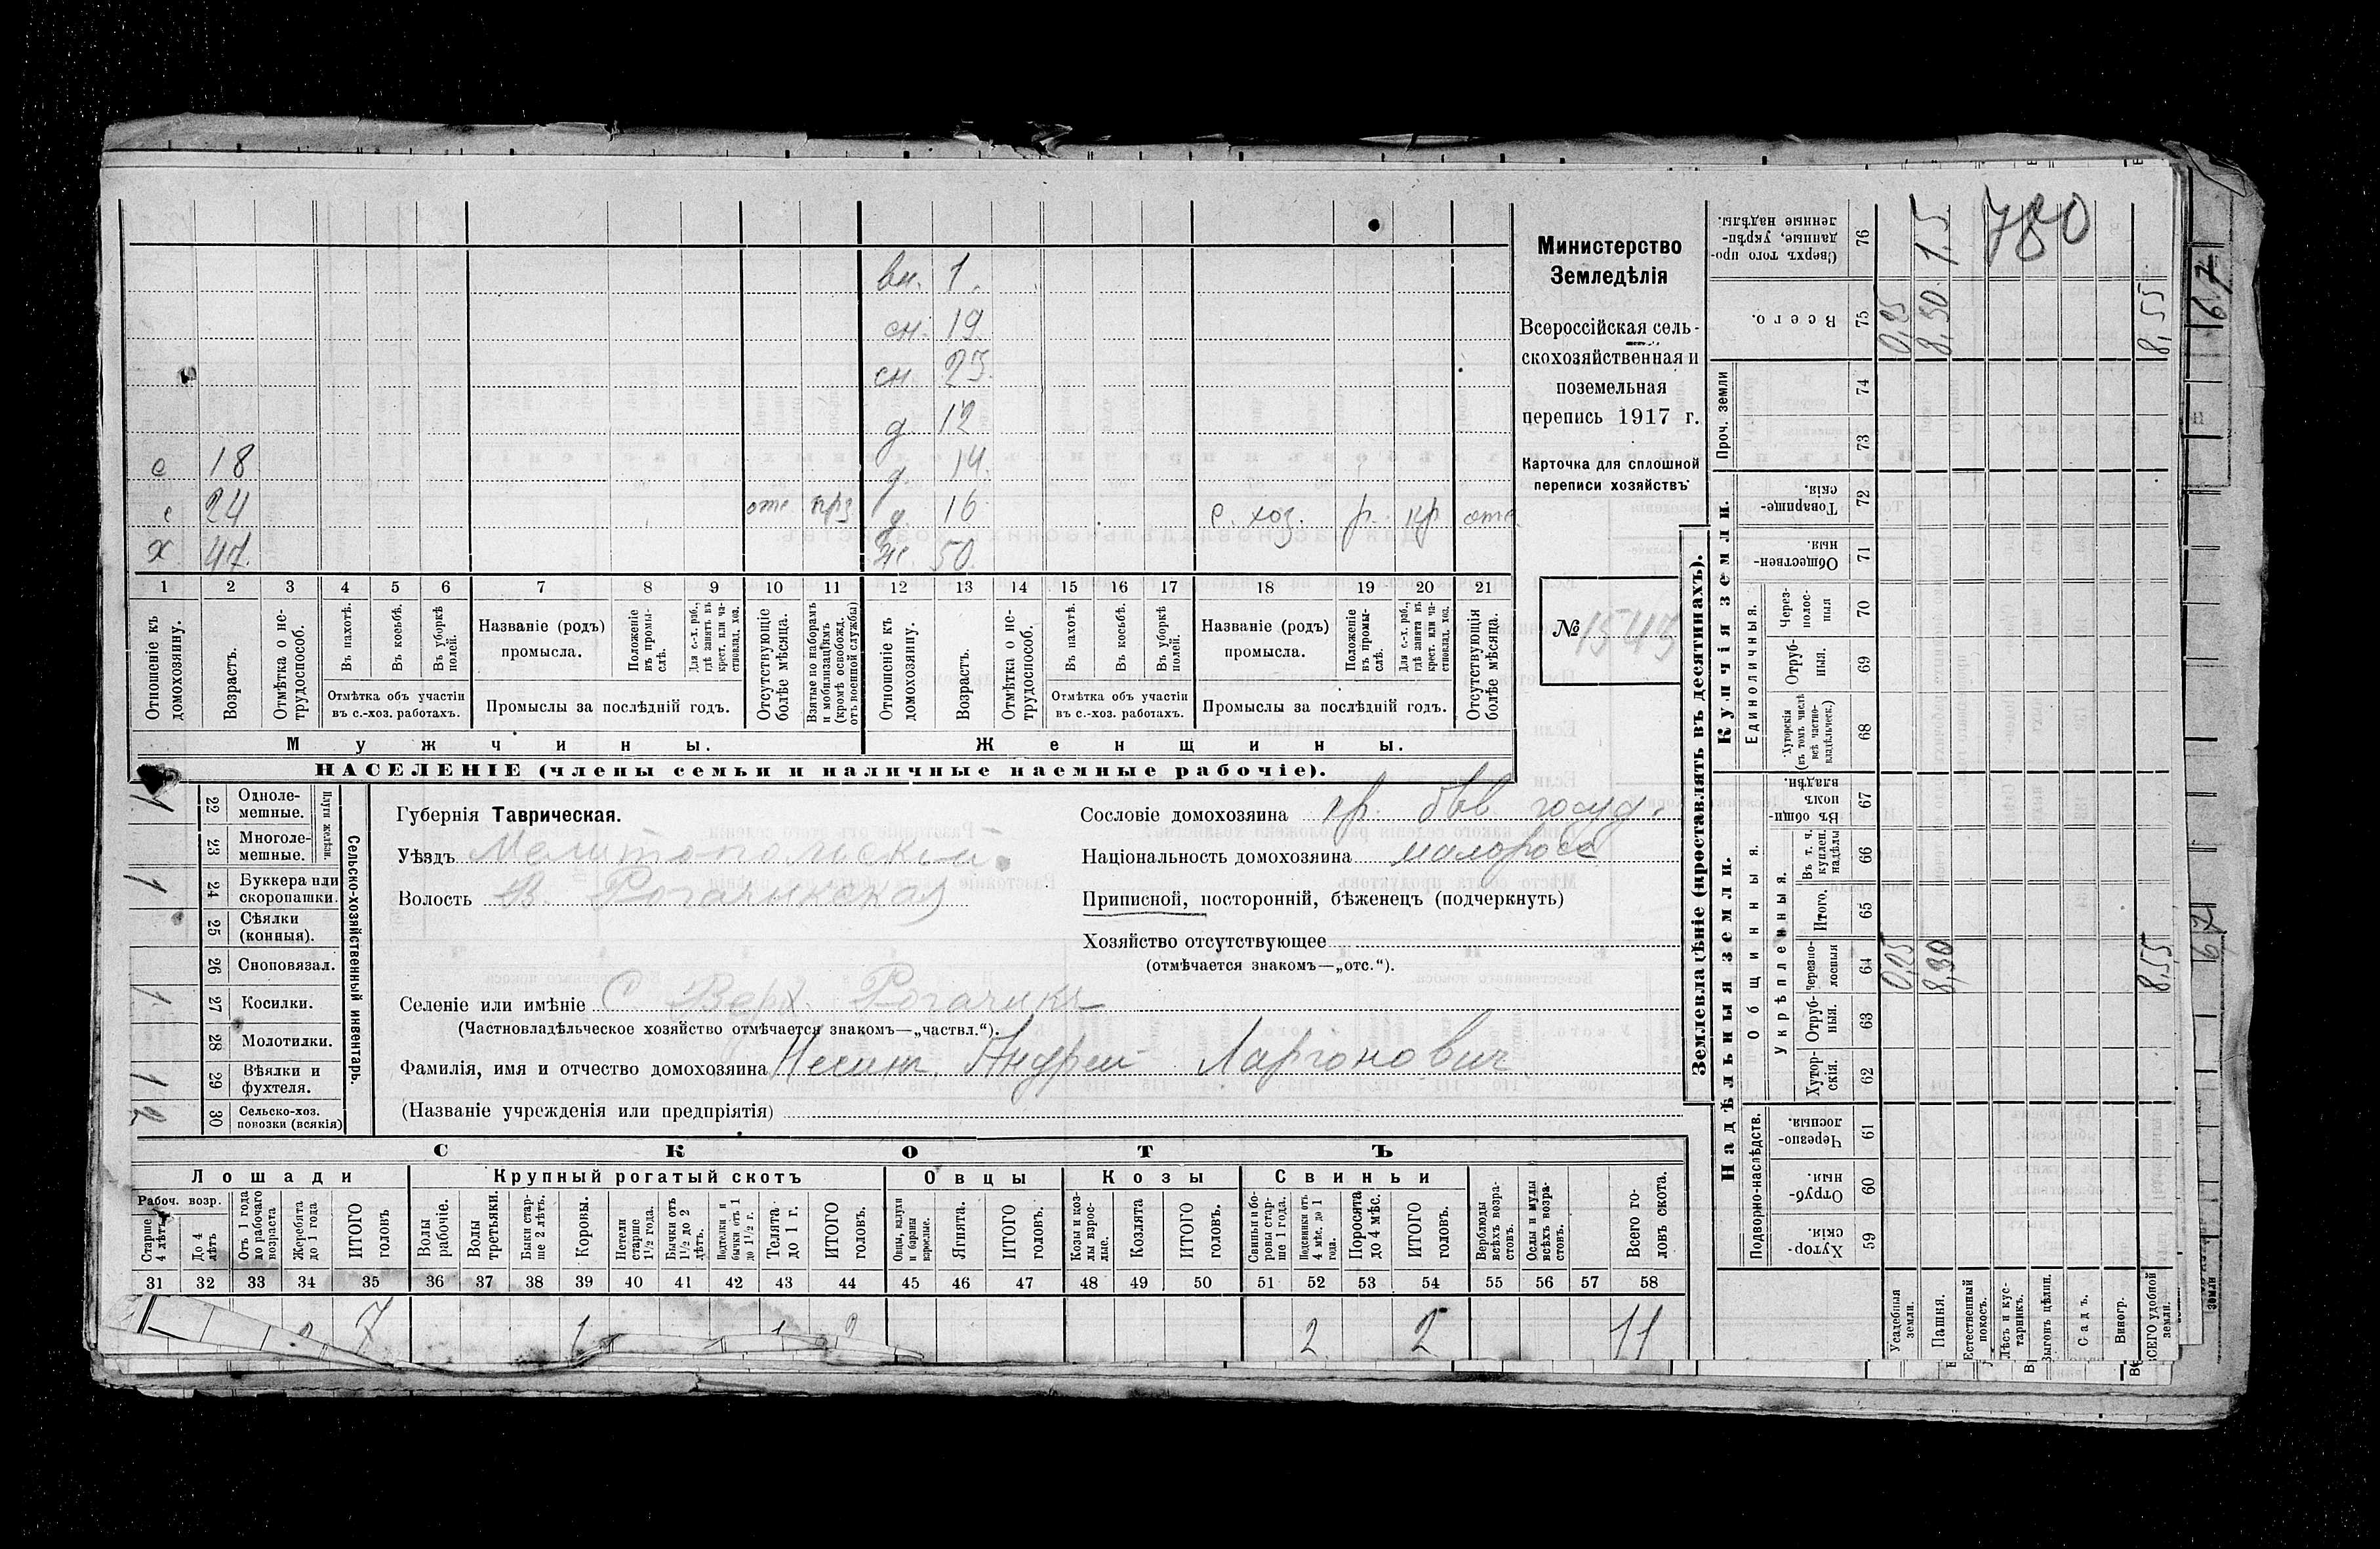 вн. 1.
сн. 19.
сн. 23.
д 12
с 18 д. 14.
с 24 отс д 16. с. хоз. р. кр отс.
х 47. ж. 50.
1 2 3 4 5 6 7 8 9 10 11 12 13 14 15 16 17 18 19 20 21
Отношеніе къ домохозяину.
Возрастъ.
Отмѣтка о нетрудоспособ.
Въ пахотѣ.
Въ косьбѣ.
Въ уборкѣ полей.
Отмѣтка объ участіи
въ с.-хоз. работахъ.
Названіе (родъ)
промысла.
Положеніе въ промыслѣ.
Для с.-х. раб., гдѣ занятъ въ крест. или частновлад. хоз.
Промыслы за послѣдній годъ.
Отсутствующіе болѣе мѣсяца.
Взятые по наборамъ и мобилизаціямъ (кромѣ освобожд. отъ военной службы)
Отношеніе къ домохозяину.
Возрастъ.
Отмѣтка о нетрудоспособ.
Въ пахотѣ.
Въ косьбѣ.
Въ уборкѣ полей.
Отмѣтка объ участіи
въ с.-хоз. работахъ.
Названіе (родъ)
промысла.
Положеніе въ промыслѣ.
Для с.-х. раб., гдѣ занята въ крест. или частновлад. хоз.
Промыслы за послѣдній годъ.
Отсутствующія болѣе мѣсяца.
Мужчины. Женщины.
НАСЕЛЕНІЕ (члены семьи и наличные наемные рабочіе).
Министерство
Земледѣлія
Всероссійская сель-
скохозяйственная и
поземельная
перепись 1917 г.
Карточка для сплошной
переписи хозяйствъ
№ 1543
Сельско-хозяйственный инвентарь.
Плуги желѣзн.
1 22 Одноле-
мешные.
23 Многоле-
мешные.
1 24 Буккера или
скоропашки.
25 Сѣялки
(конныя).
26 Сноповязал.
1 27 Косилки.
28 Молотилки.
1 29 Вѣялки и
фухтеля.
2 30 Сельско-хоз.
повозки (всякія)
Губернія Таврическая.
Уѣздъ Мелитопольскій
Волость В. Рогачикская
Селеніе или имѣніе С Верх. Рогачикъ
(Частновладѣльческое хозяйство отмѣчается знакомъ—„частвл.“).
Фамилія, имя и отчество домохозяина Андрей
(Названіе учрежденія или предпріятія)
Сословіе домохозяина кр. быв госуд.
Національность домохозяина малоросс
Приписной, посторонній, бѣженецъ (подчеркнуть)
Хозяйство отсутствующее
(отмѣчается знакомъ—„отс.“).
СКОТЪ
Лошади Крупный рогатый скотъ Овцы Козы Свиньи
Рабоч. возр.
Старше 4 лѣтъ
До 4 лѣтъ
Отъ 1 года до рабочаго возраста
Жеребята до 1 года
ИТОГО головъ
Волы рабочіе.
Волы третьяки.
Быки старше 2 лѣтъ.
Коровы.
Нетели старше 1½ года.
Бычки отъ 1½ до 2 лѣтъ.
Подтелки и бычки отъ 1 до 1½ г.
Телята до 1 г.
ИТОГО головъ.
Овцы, валухи и бараны взрослые.
Ягнята.
ИТОГО головъ.
Козы и козлы взрослые.
Козлята
ИТОГО головъ.
Свиньи и боровы старше 1 года.
Подсвинки отъ 4 мѣс. до 1 года.
Поросята до 4 мѣс.
ИТОГО головъ.
Верблюды всѣхъ возрастовъ.
Ослы и мулы всѣхъ возрастовъ.
Всего головъ скота.
31 32 33 34 35 36 37 38 39 40 41 42 43 44 45 46 47 48 49 50 51 52 53 54 55 56 57 58
7 1 2 2 11
Землевладѣніе (проставлять въ десятинахъ).
Надѣльныя земли. Купчія земли.
780
Сверхъ того проданные, укрѣпленные надѣлы. 76 1.5
Всего. 75 0,25 8,30 8,55
Проч. земли
74
73
Товарищескія. 72
Общественныя. 71
Единоличныя.
Черезполосныя 70
Отрубныя. 69
Хуторскія (въ томъ числѣ всѣ частновладѣльческ.) 68
Въ общинномъ владѣн. 67
Общинныя.
Укрѣпленныя.
Въ т. ч. куплен. надѣлы 66
Итого. 65
Черезполосныя 64 0,25 8,30 8,55
Отрубныя. 63
Хуторскія. 62
Подворно-наслѣдств.
Черезполосныя 61
Отрубныя. 60
Хуторскія 59
Усадебныя земли.
Пашня.
Естественный покосъ.
Лѣсъ и кустарникъ.
Выгонъ цѣлин.
Садъ.
Виногр.
ВСЕГО удобной земли.
67
67
земли